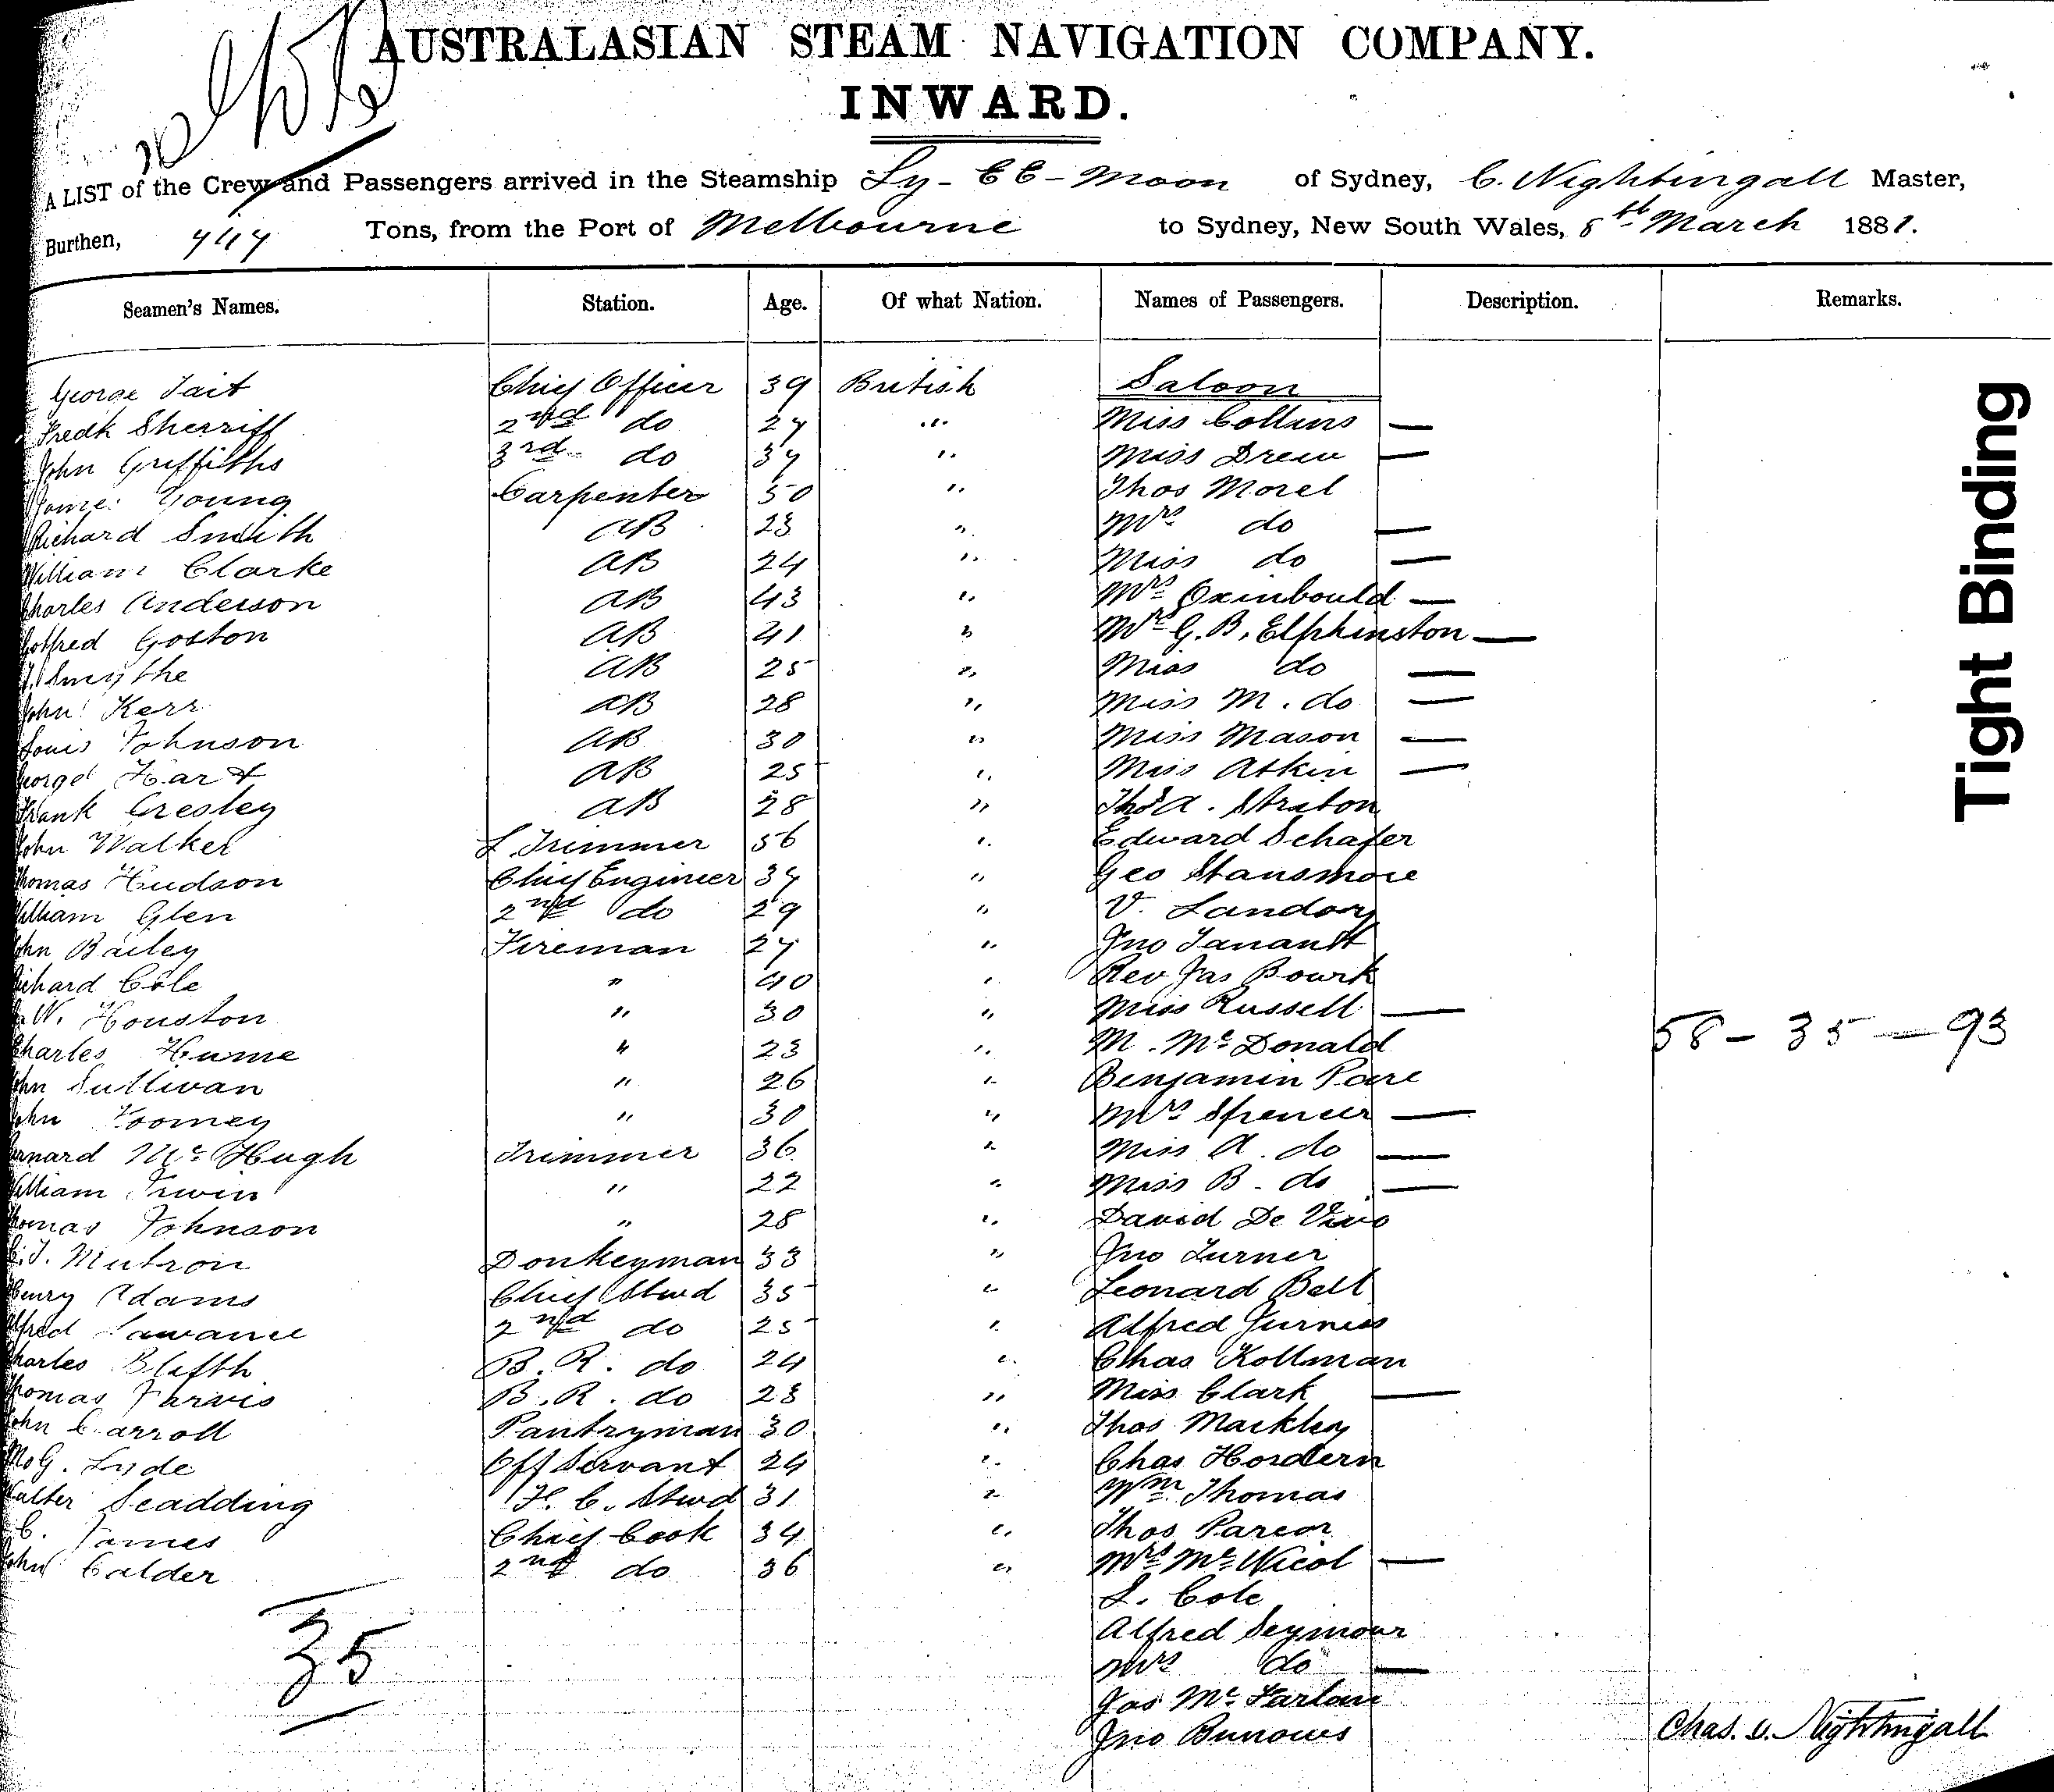 AUSTRALASIAN STEAM NAVIGATION COMPANY.
INWARD.
A LIST of the Crew and Passengers arrived in the Steamship Ly-EE-Moon of Sydney, C. Nightingall Master,
Burthen, Tons, from the Port of Melbourne to Sydney, New South Wales, 8th March 1881.
Seamen's Names. Station. Age. Of what Nation. Names of Passengers. Description. Remarks.
George Tait Chief Officer 39 British Saloon
Fredk Sherriff 2nd do 27 " Miss Collins —
John Griffiths 3rd do 37 " Miss Drew —
James Young Carpenter 50 " Thos Morel
Richard Smith AB 23 " Mrs do —
William Clarke AB 24 " Miss do —
Charles Anderson AB 43 " Mrs Oxinbould —
Gotfred Goston AB 41 " Mr G. B. Elphinston —
Smythe AB 25 " Miss do —
John Kerr AB 28 " Miss M. do —
Louis Johnson AB 30 " Miss Mason —
George Hart AB 25 " Miss Atkin —
Frank Gresley AB 28 " Thos A. Straton
John Walker L. Trimmer 56 " Edward Schafer
Thomas Hudson Chief Engineer 37 " Geo Stansmore
William Glen 2nd do 29 " V. Landory
John Bailey Fireman 27 " Jno
Richard Cole " 40 " Rev Jas Bourk
W. Houston " 30 " Miss Russell —
Charles Hume " 23 " M. McDonald 58 - 35 — 93
John Sullivan " 26 " Benjamin
John Toomey " 30 " Mrs Spencer —
Bernard McHugh Trimmer 36 " Miss A. do —
William Irwin " 22 " Miss B. do —
Thomas Johnson " 28 " David De
Mutron Donkeyman 33 " Jno Turner
Henry Adams Chief Stwd 35 " Leonard Bell
Alfred 2nd do 25 " Alfred Jurness
Charles Blyth B. R. do 24 " Chas Kollman
Thomas Jarvis B. R. do 23 " Miss Clark —
John Carroll Pantryman 30 " Thos Mackley
Lyde Off Servant 24 " Chas Hordern
Walter Scadding F. C. Stwd 31 " Wm Thomas
C. James Chief Cook 34 " Thos
John Calder 2nd do 36 " Mrs McNicol —
S. Cole
Alfred Seymour
Mrs do —
35
Jas McFarlane
Jno Burrows
Chas. Nightingall
Tight Binding